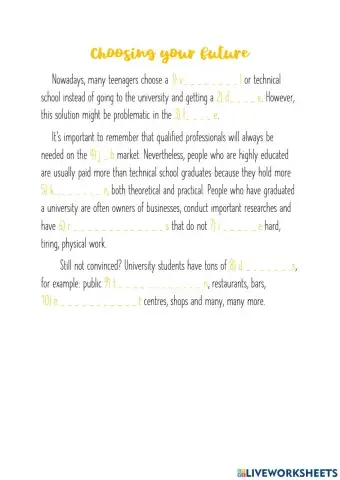 Choosing your future
Nowadays, many teenagers choose a 1) v_ _ _ _ _ _ _ _ l or technical
school instead of going to the university and getting a 2) d_ _ _ _ e. However,
this solution might be problematic in the 3) f_ _ _ _ e.
It's important to remember that qualified professionals will always be
needed on the 4) j _ b market. Nevertheless, people who are highly educated
are usually paid more than technical school graduates because they hold more
5) k_ _ _ _ _ _ _ n, both theoretical and practical. People who have graduated
a university are often owners of businesses, conduct important researches and
have 6) r _ _ _ _ _ _ _ _ _ _ _ _ _ _ s that do not 7) i _ _ _ _ _ e hard,
tiring, physical work.
Still not convinced? University students have tons of 8) d _ _ _ _ _ _ _ s,
for example: public 9) t_ _ _ _ _ _ _ _ _ _ _ _ n, restaurants, bars,
10) e_ _ _ _ _ _ _ _ _ _ _ _ t centres, shops and many, many more.
LIVEWORKSHEETS